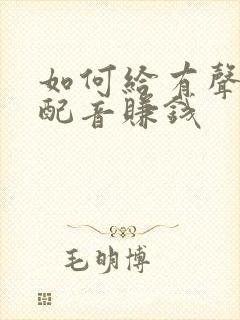 如何給有聲
配音賺錢
毛明博